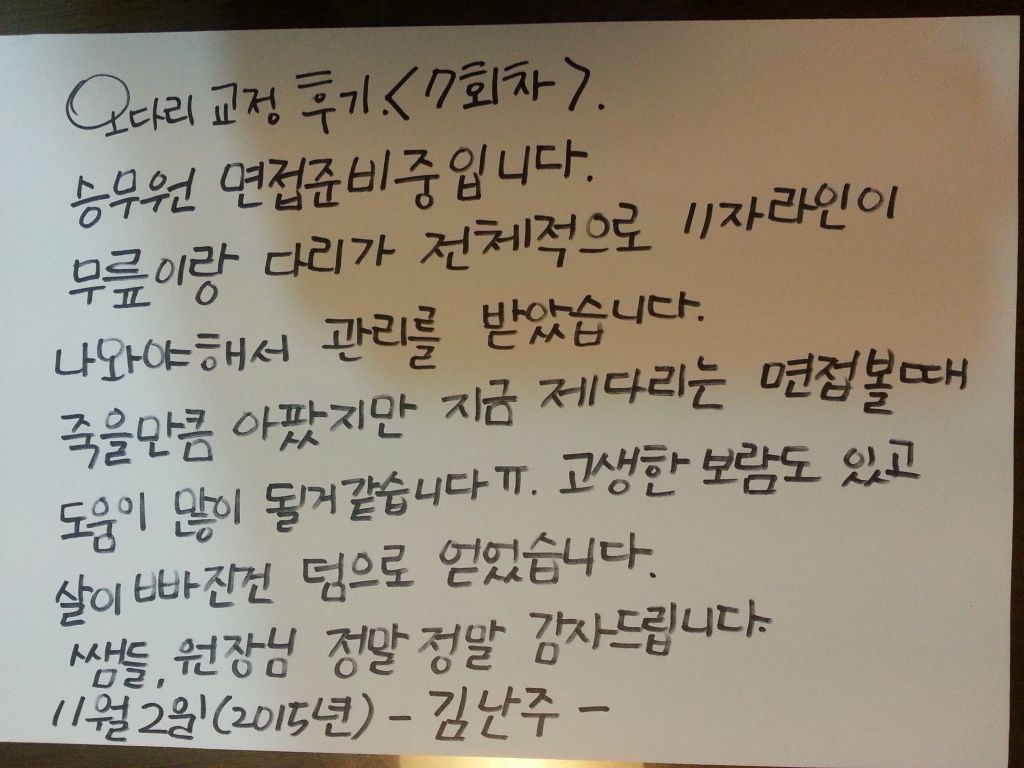 오다리 교정 후기.<7회차>.
승무원 면접준비중입니다.
무릎이랑 다리가 전체적으로 11자라인이
나와야해서 관리를 받았습니다.
죽을만큼 아팠지만 지금 제다리는 면접볼때
도움이 많이 될거같습니다ㅠ. 고생한 보람도 있고
살이 빠진건 덤으로 얻었습니다.
쌤들, 원장님 정말정말 감사드립니다.
11월 2일(2015년) - 김난주 -